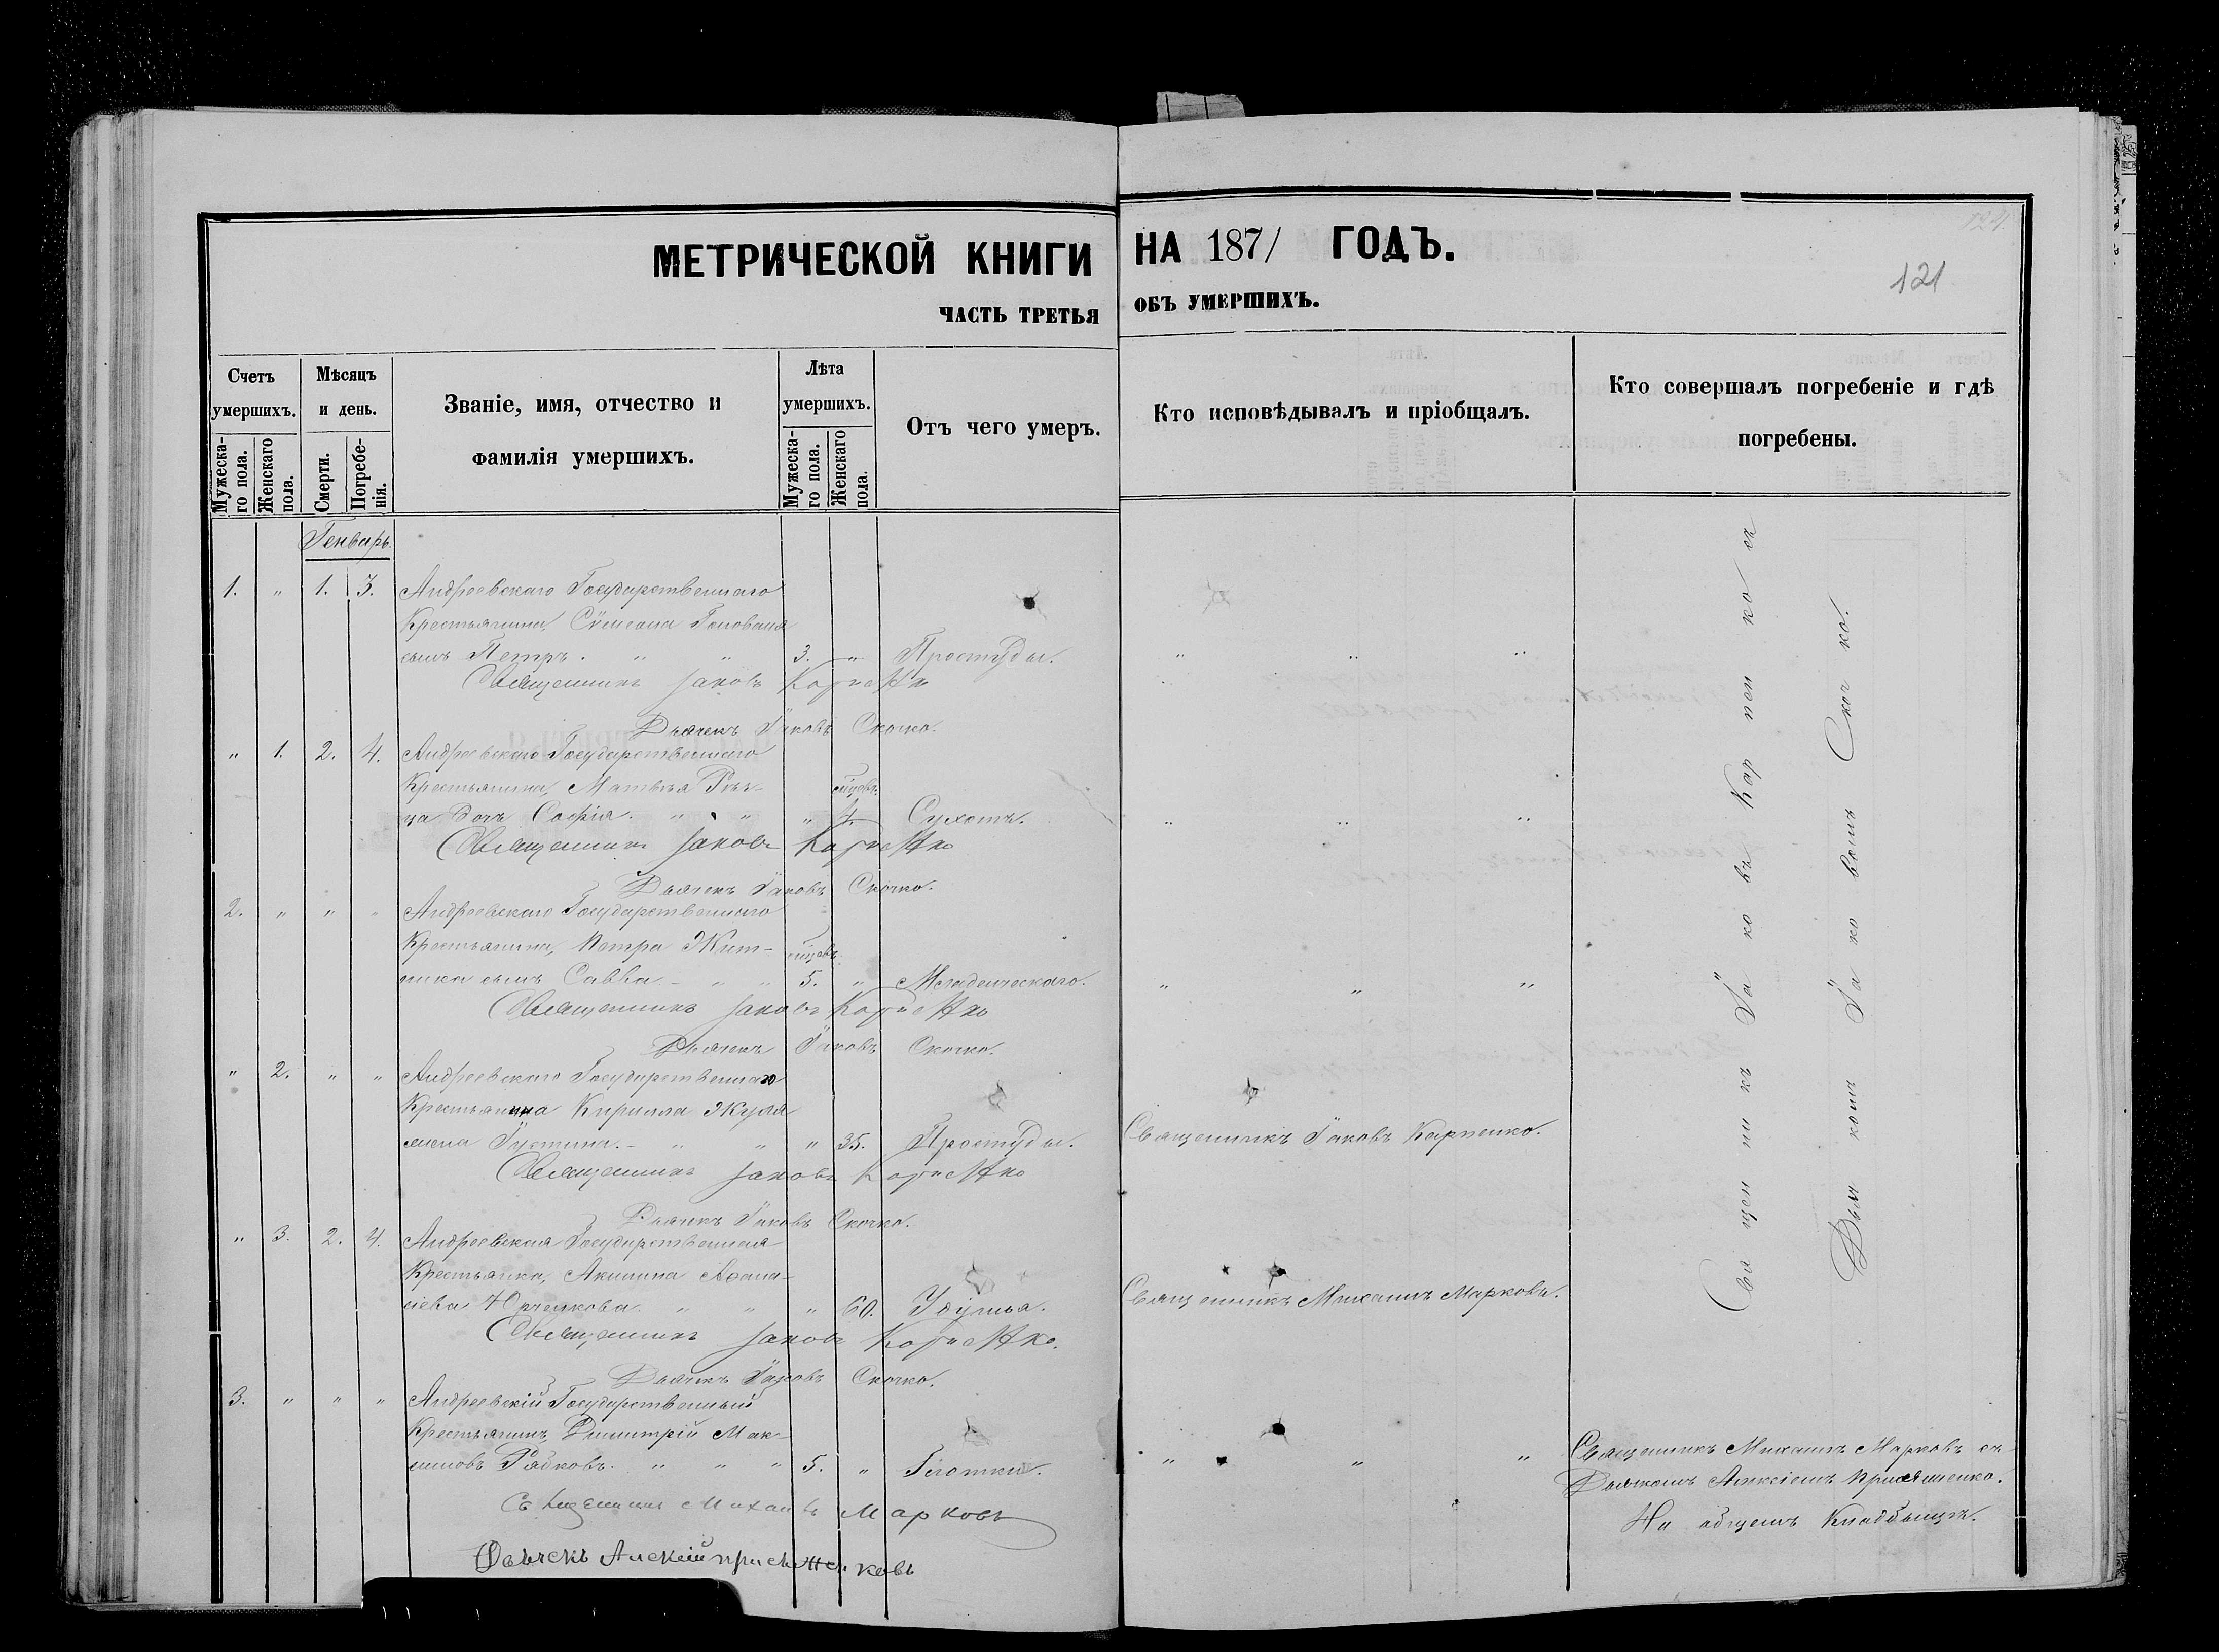 МЕТРИЧЕСКОЙ КНИГИ НА 1871 ГОДЪ.
121
ЧАСТЬ ТРЕТЬЯ ОБЪ УМЕРШИХЪ.
Счетъ умершихъ.
Мужеска-го пола.
Женскаго пола.
Мѣсяцъ и день.
Смерти.
Погребе-нія.
Званіе, имя, отчество и фамилія умершихъ.
Лѣта умершихъ.
Мужеска-го пола.
Женскаго пола.
Отъ чего умеръ.
Кто исповѣдывалъ и пріобщалъ.
Кто совершалъ погребеніе и гдѣ погребены.
Генварь.
1. " 1. 3. Андреевскаго Государственнаго
Крестьянина, Сѵмеона
сынъ Петръ. " " 3. " Простуды. " " "
Священникъ Іаковъ Карпенко
Дьячекъ Іаковъ Скочко.
" 1. 2. 4. Андреевскаго Государственнаго
Крестьянина, Матвѣя
ца дочь Софія. " " " Сухоть. " " "
Священникъ Іаковъ Карпенко
Дьячекъ Іаковъ Скочко.
2. " " " Андреевскаго Государственнаго
Крестьянина, Петра Жит-
ника сынъ Савва. - " " 5. " Младенческаго. " " "
Священникъ Іаковъ Карпенко
Дьячекъ Іаковъ Скочко.
" 2. " " Андреевскаго Государственнаго
Крестьянина Кирилла
жена Іустина. - " " " 35. Простуды. Священникъ Іаковъ Карпенко.
Священникъ Іаковъ Карпенко
Дьячекъ Іаковъ Скочко.
" 3. 2. 4. Андреевская Государственная
Крестьянка, Акилина Афана-
сіева " " " 60. Священникъ Михаилъ Марковъ.
Священникъ Іаковъ Карпенко.
Дьячекъ Іаковъ Скочко.
3. " " " Андреевскій Государственный
Крестьянинъ, Димитрій Мак-
симовъ Рябковъ. " " " 5. " Глотки. " " "
Священникъ Михаилъ Марковъ
Дьячекъ Алексій
Священникъ Іаковъ Карпенко съ
Дьячкомъ Іаковомъ Скочко.
Священникъ Михаилъ Марковъ съ
Дьячкомъ Алексіемъ
На общемъ Кладбищѣ.